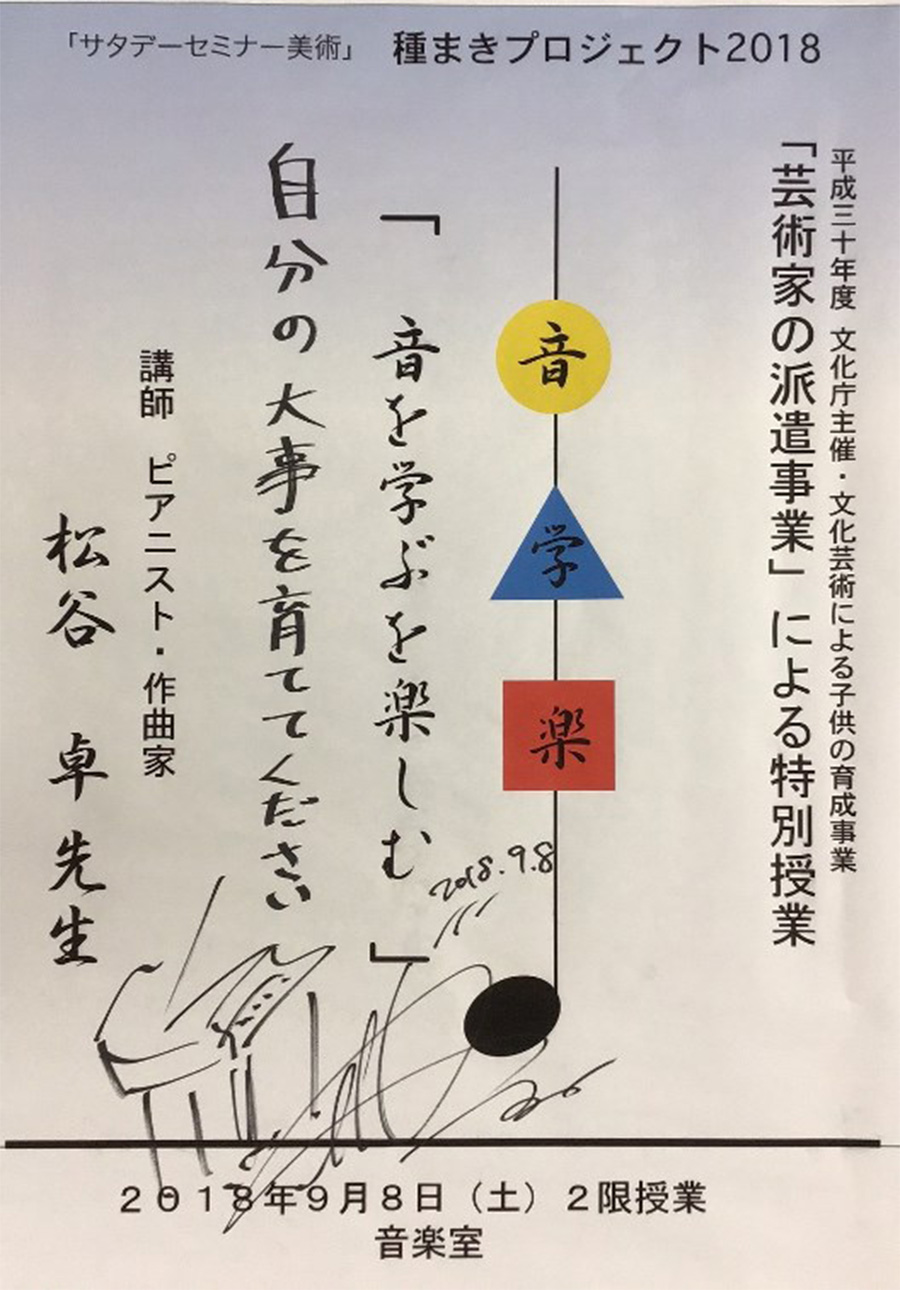 「サタデーセミナー美術」 種まきプロジェクト2018
平成三十年度 文化庁主催・文化芸術による子供の育成事業
「芸術家の派遣事業」による特別授業
音
学
楽
「 音を学ぶを楽しむ 」
自分の大事を育ててください
講師 ピアニスト・作曲家
松谷 卓 先生
2018.9.8
2018年9月8日（土）2限授業
音楽室